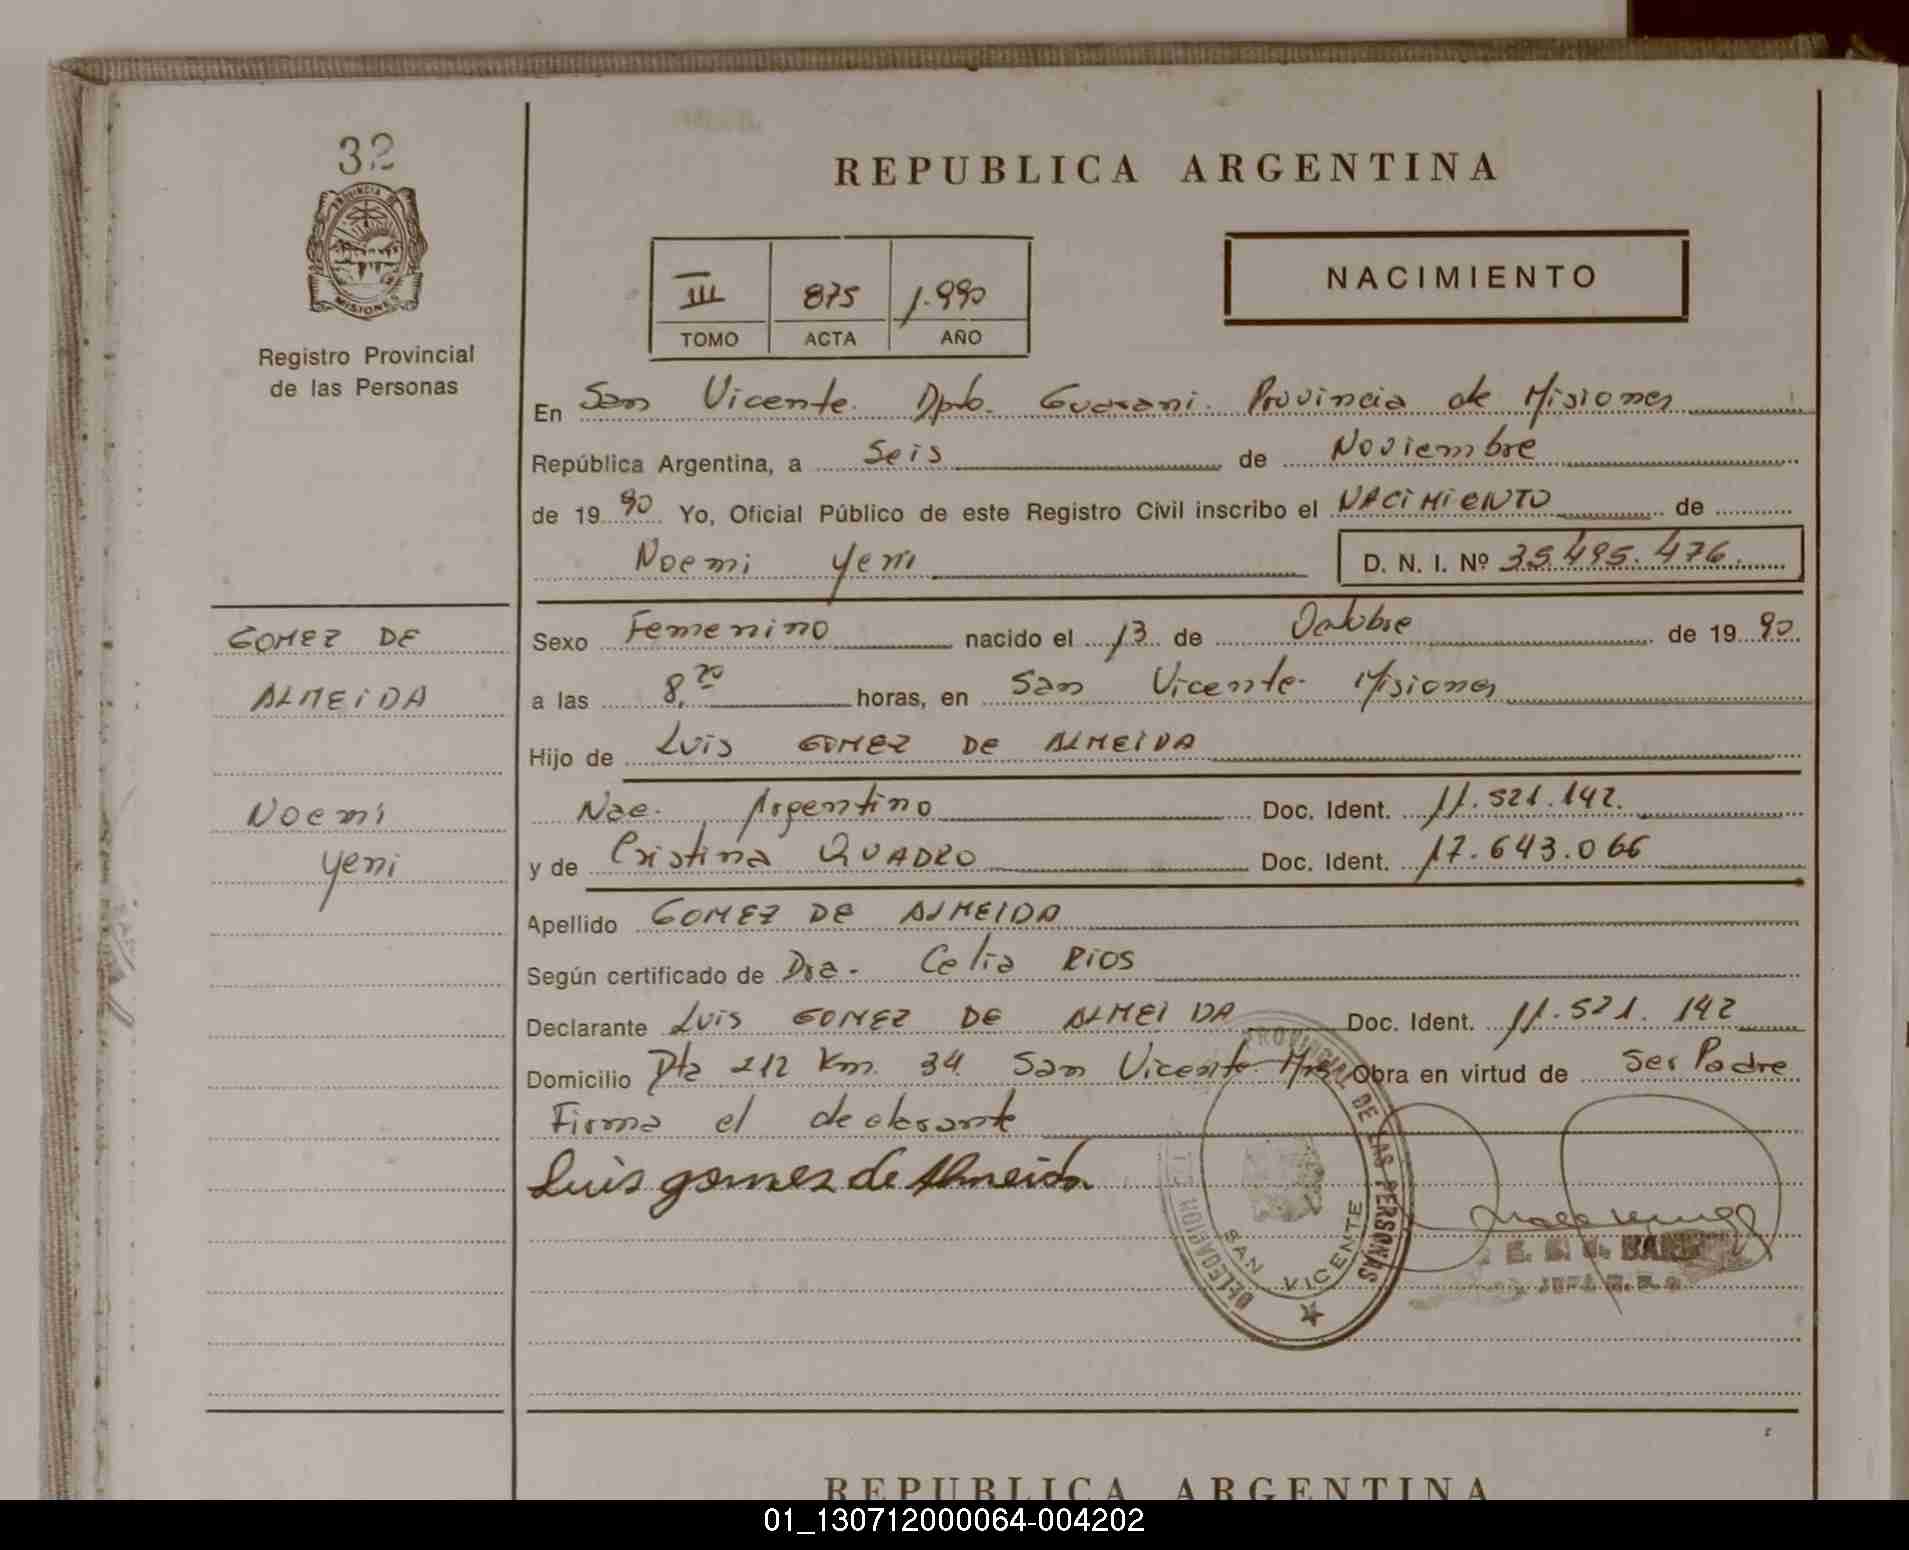 32
PROVINCIA DE
MISIONES
Registro Provincial
de las Personas
GOMEZ DE
ALMEIDA
Noemi
Yeni
REPUBLICA ARGENTINA
III 875 1.990
TOMO ACTA AÑO
NACIMIENTO
En San Vicente. Dpto. Guarani. Provincia de Misiones
República Argentina, a Seis de Noviembre
de 19 90 Yo, Oficial Público de este Registro Civil inscribo el NACIMIENTO de
Noemi Yeni D. N. I. Nº 35.495.476.
Sexo Femenino nacido el 13 de Octubre de 19 90
a las 8,20 horas, en San Vicente - Misiones
Hijo de Luis GOMEZ DE ALMEIDA
Nac. Argentino Doc. Ident. 11.521.142.
y de Cristina QUADRO Doc. Ident. 17.643.066
Apellido GOMEZ DE ALMEIDA
Según certificado de Dra. Celia RIOS
Declarante Luis GOMEZ DE ALMEIDA Doc. Ident. 11.521.142
Domicilio Pta 212 Km. 34 San Vicente Mnes Obra en virtud de Ser Padre
Firma el declarante
Luis gomes de Almeida
PROVINCIAL DE LAS PERSONAS
DELEGACION
SAN VICENTE
REPUBLICA ARGENTINA
01_130712000064-004202